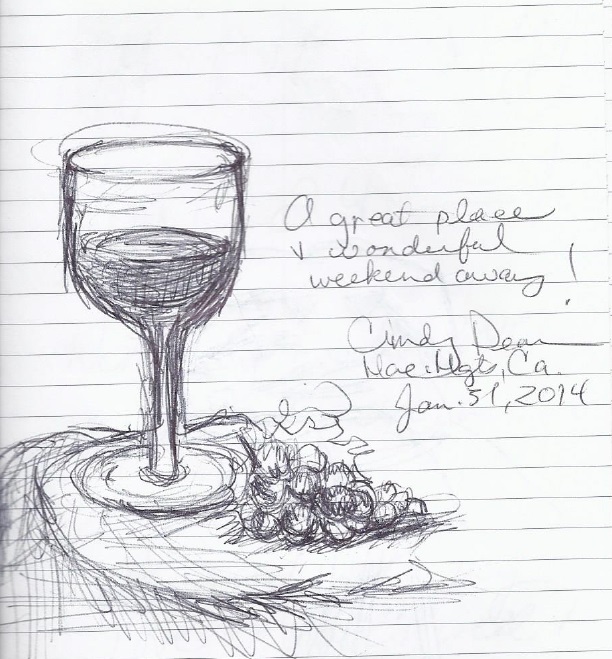 A great place
& wonderful
weekend away!
Cindy Dean
Hac. Hgts, Ca.
Jan. 31, 2014